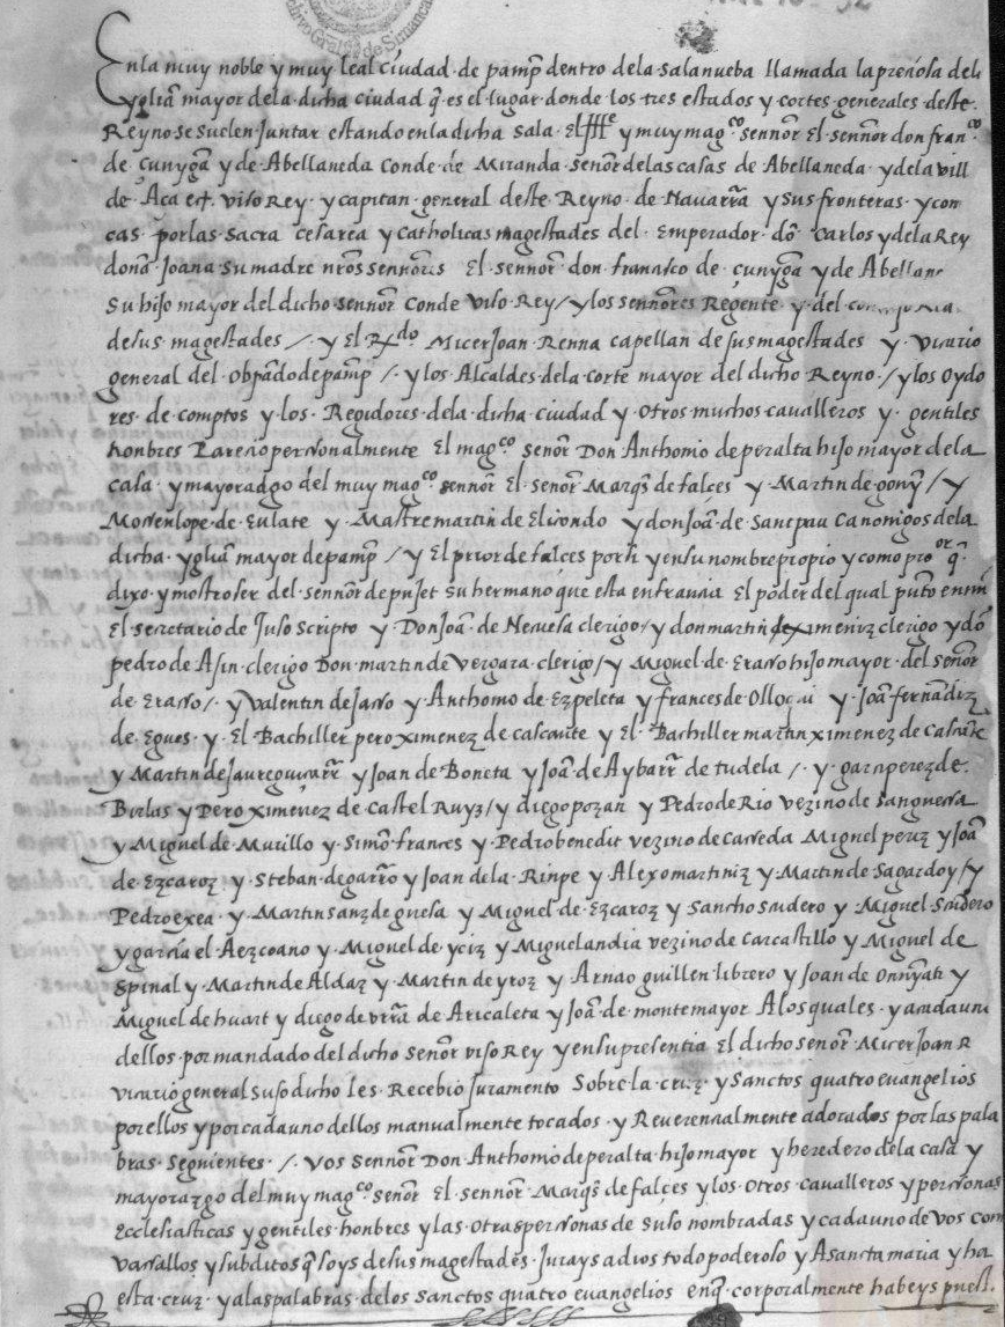 Archivo Gral de Simancas
Enla muy noble y muy leal ciudad de pamp̄ dentro dela sala nueba llamada la preciosa dela
yglia mayor dela dicha ciudad q̄ es el lugar donde los tres estados y cortes generales deste
Reyno se suelen juntar estando enla dicha sala El y muy magco sennor El sennor don franco
de çunyga y de Abellaneda Conde de Miranda señor delas casas de Abellaneda y dela vill
de Aça viso Rey y capitan general deste Reyno de Navarra y sus fronteras y com
cas por las sacra cesarea y catholicas magestades del Emperador dō Carlos y dela Rey
dona Joana su madre nros sennores El sennor don francisco de çunyga y de Abellan
su hijo mayor del dicho sennor Conde viso Rey / y los sennores Regente y del
de sus magestades / y El Rdo Micer Joan Renna capellan de sus magestades y vicario
general del obpado de pamp̄ / y los Alcaldes dela corte mayor del dicho Reyno / y los oydo
res de comptos y los Regidores dela dicha ciudad y otros muchos cavalleros y gentiles
honbres Parecio personalmente El magco señor Don Anthonio de peralta hijo mayor dela
casa y mayoradgo del muy magco sennor El señor Marqs de falçes y Martin de gony / y
Mossen lope de Eulate y Mastre martin de Elicondo y don Joā de Sanepau canonigos dela
dicha yglia mayor de pamp̄ / y El prior de falçes por si y en su nombre propio y como proor q̄
dixo y mostro ser del sennor de su hermano que esta en francia El poder del qual
El secretario de Juso scripto y Don Joā de clerigo / y don martin de ximeniz clerigo y dō
pedro de Asin clerigo Don martin de vergara clerigo / y Miguel de Erasso hijo mayor del señor
de Erasso / y valentin de Jasso y Anthonio de Ezpeleta y frances de Olloqui y Joā fernādiz
de Egues y El Bachiller pero ximenez de cascante y El Bachiller martin ximenez de Cascāte
y Martin de Jaureguiçarr y Joan de Boneta y Joā de Aybarr de tudela / y garci perez de
Bierlas y Pero ximenez de Castel Ruyz / y diego pozan y Pedro de Rio vezino de Sanguessa
y Miguel de Murillo y Simō frances y Pedro benedit vezino de Casseda Miguel periz y Joā
de Ezcaroz y Steban de garro y Joan dela y Alexo martiniz y Martin de Sagardoy / y
Pedro exea y Martin sanz de guesa y Miguel de Ezcaroz y Sancho y Miguel
y garcia el Aezcoano y Miguel de yciz y Miguel andia vezino de Carcastillo y Miguel de
Spinal y Martin de Aldaz y Martin de yroz y Arnao guillen librero y Joan de Onnyati y
Miguel de huart y diego de vrra de Aricaleta y Joā de montemayor A los quales y a cadauno
dellos por mandado del dicho señor viso Rey y en su presentia El dicho señor Micer Joan R
vicario general suso dicho les Recebio juramento Sobre la cruz y Sanctos quatro evangelios
por ellos y por cadauno dellos manualmente tocados y Reverencialmente adorados por las pala
bras seguientes / vos sennor Don Anthonio de peralta hijo mayor y heredero dela casa y
mayorazgo del muy magco señor El sennor Marqs de falçes y los otros cavalleros y personas
Ecclesiasticas y gentiles honbres y las otras personas de suso nombradas y cada uno de vos com
vassallos y subditos q̄ soys de sus magestades Jurays a dios todo poderoso y A sancta maria y ha
esta cruz y a las palabras delos sanctos quatro evangelios enq̄ corporalmente habeys puest